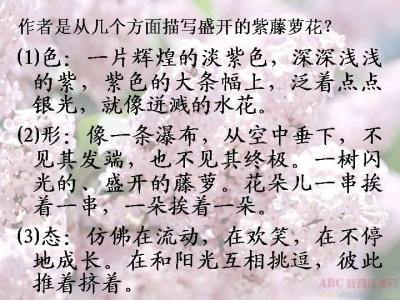 作者是从几个方面描写盛开的紫藤萝花?
(1)色：一片辉煌的淡紫色，深深浅浅
的紫，紫色的大条幅上，泛着点点
银光，就像迸溅的水花。
(2)形：像一条瀑布，从空中垂下，不
见其发端，也不见其终极。一树闪
光的、盛开的藤萝。花朵儿一串挨
着一串，一朵挨着一朵。
(3)态：仿佛在流动，在欢笑，在不停
地成长。在和阳光互相挑逗，彼此
推着挤着。
ABC